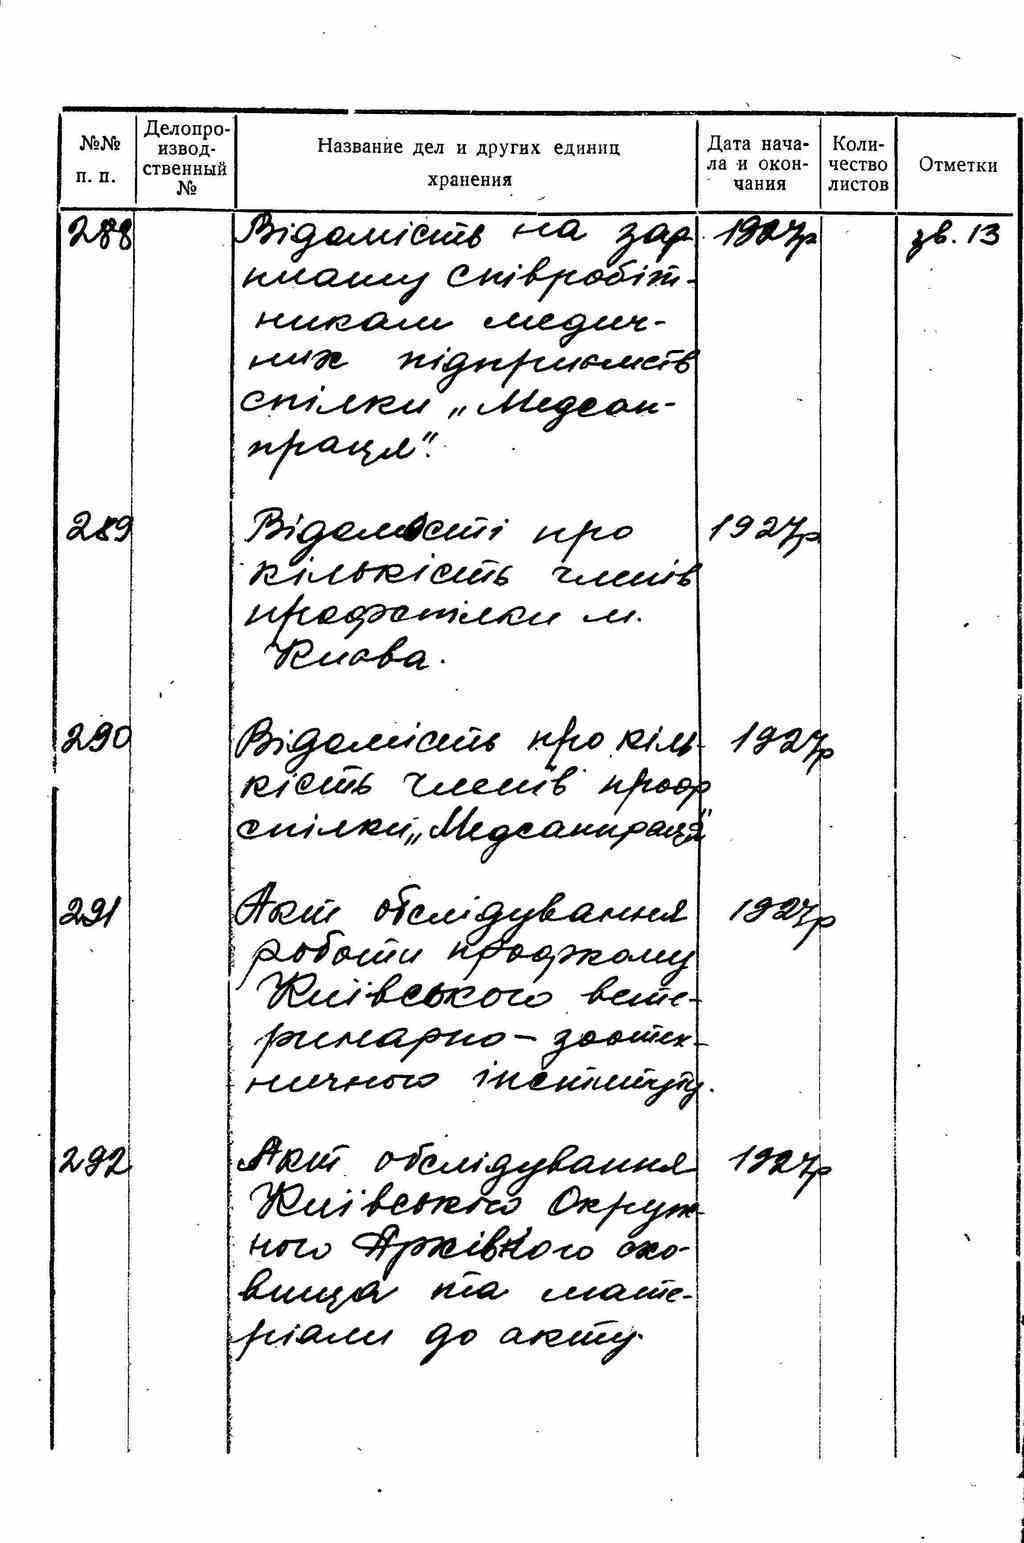 №№ п. п.
Делопро-
извод-
ственный
№
Название дел и других единиц
хранения
Дата нача-
ла и окон-
чания
Коли-
чество
листов
Отметки
288 Відомість на зар 1927р зв. 13
плату співробіт-
никам медич-
них підприємств
спілки „Медсан-
праця".
289 Відомості про 1927р
кількість членів
профспілки м.
Києва.
290 Відомість про кіль- 1927р
кість членів проф
спілки „Медсанпраця"
291 Акт обслідування 1927р
роботи профкому
Київського вете-
ринарно-зоотех-
ничного інституту.
292 Акт обслідування 1927р
Київського Окруж-
ного Архівного схо-
вища та мате-
ріали до акту.